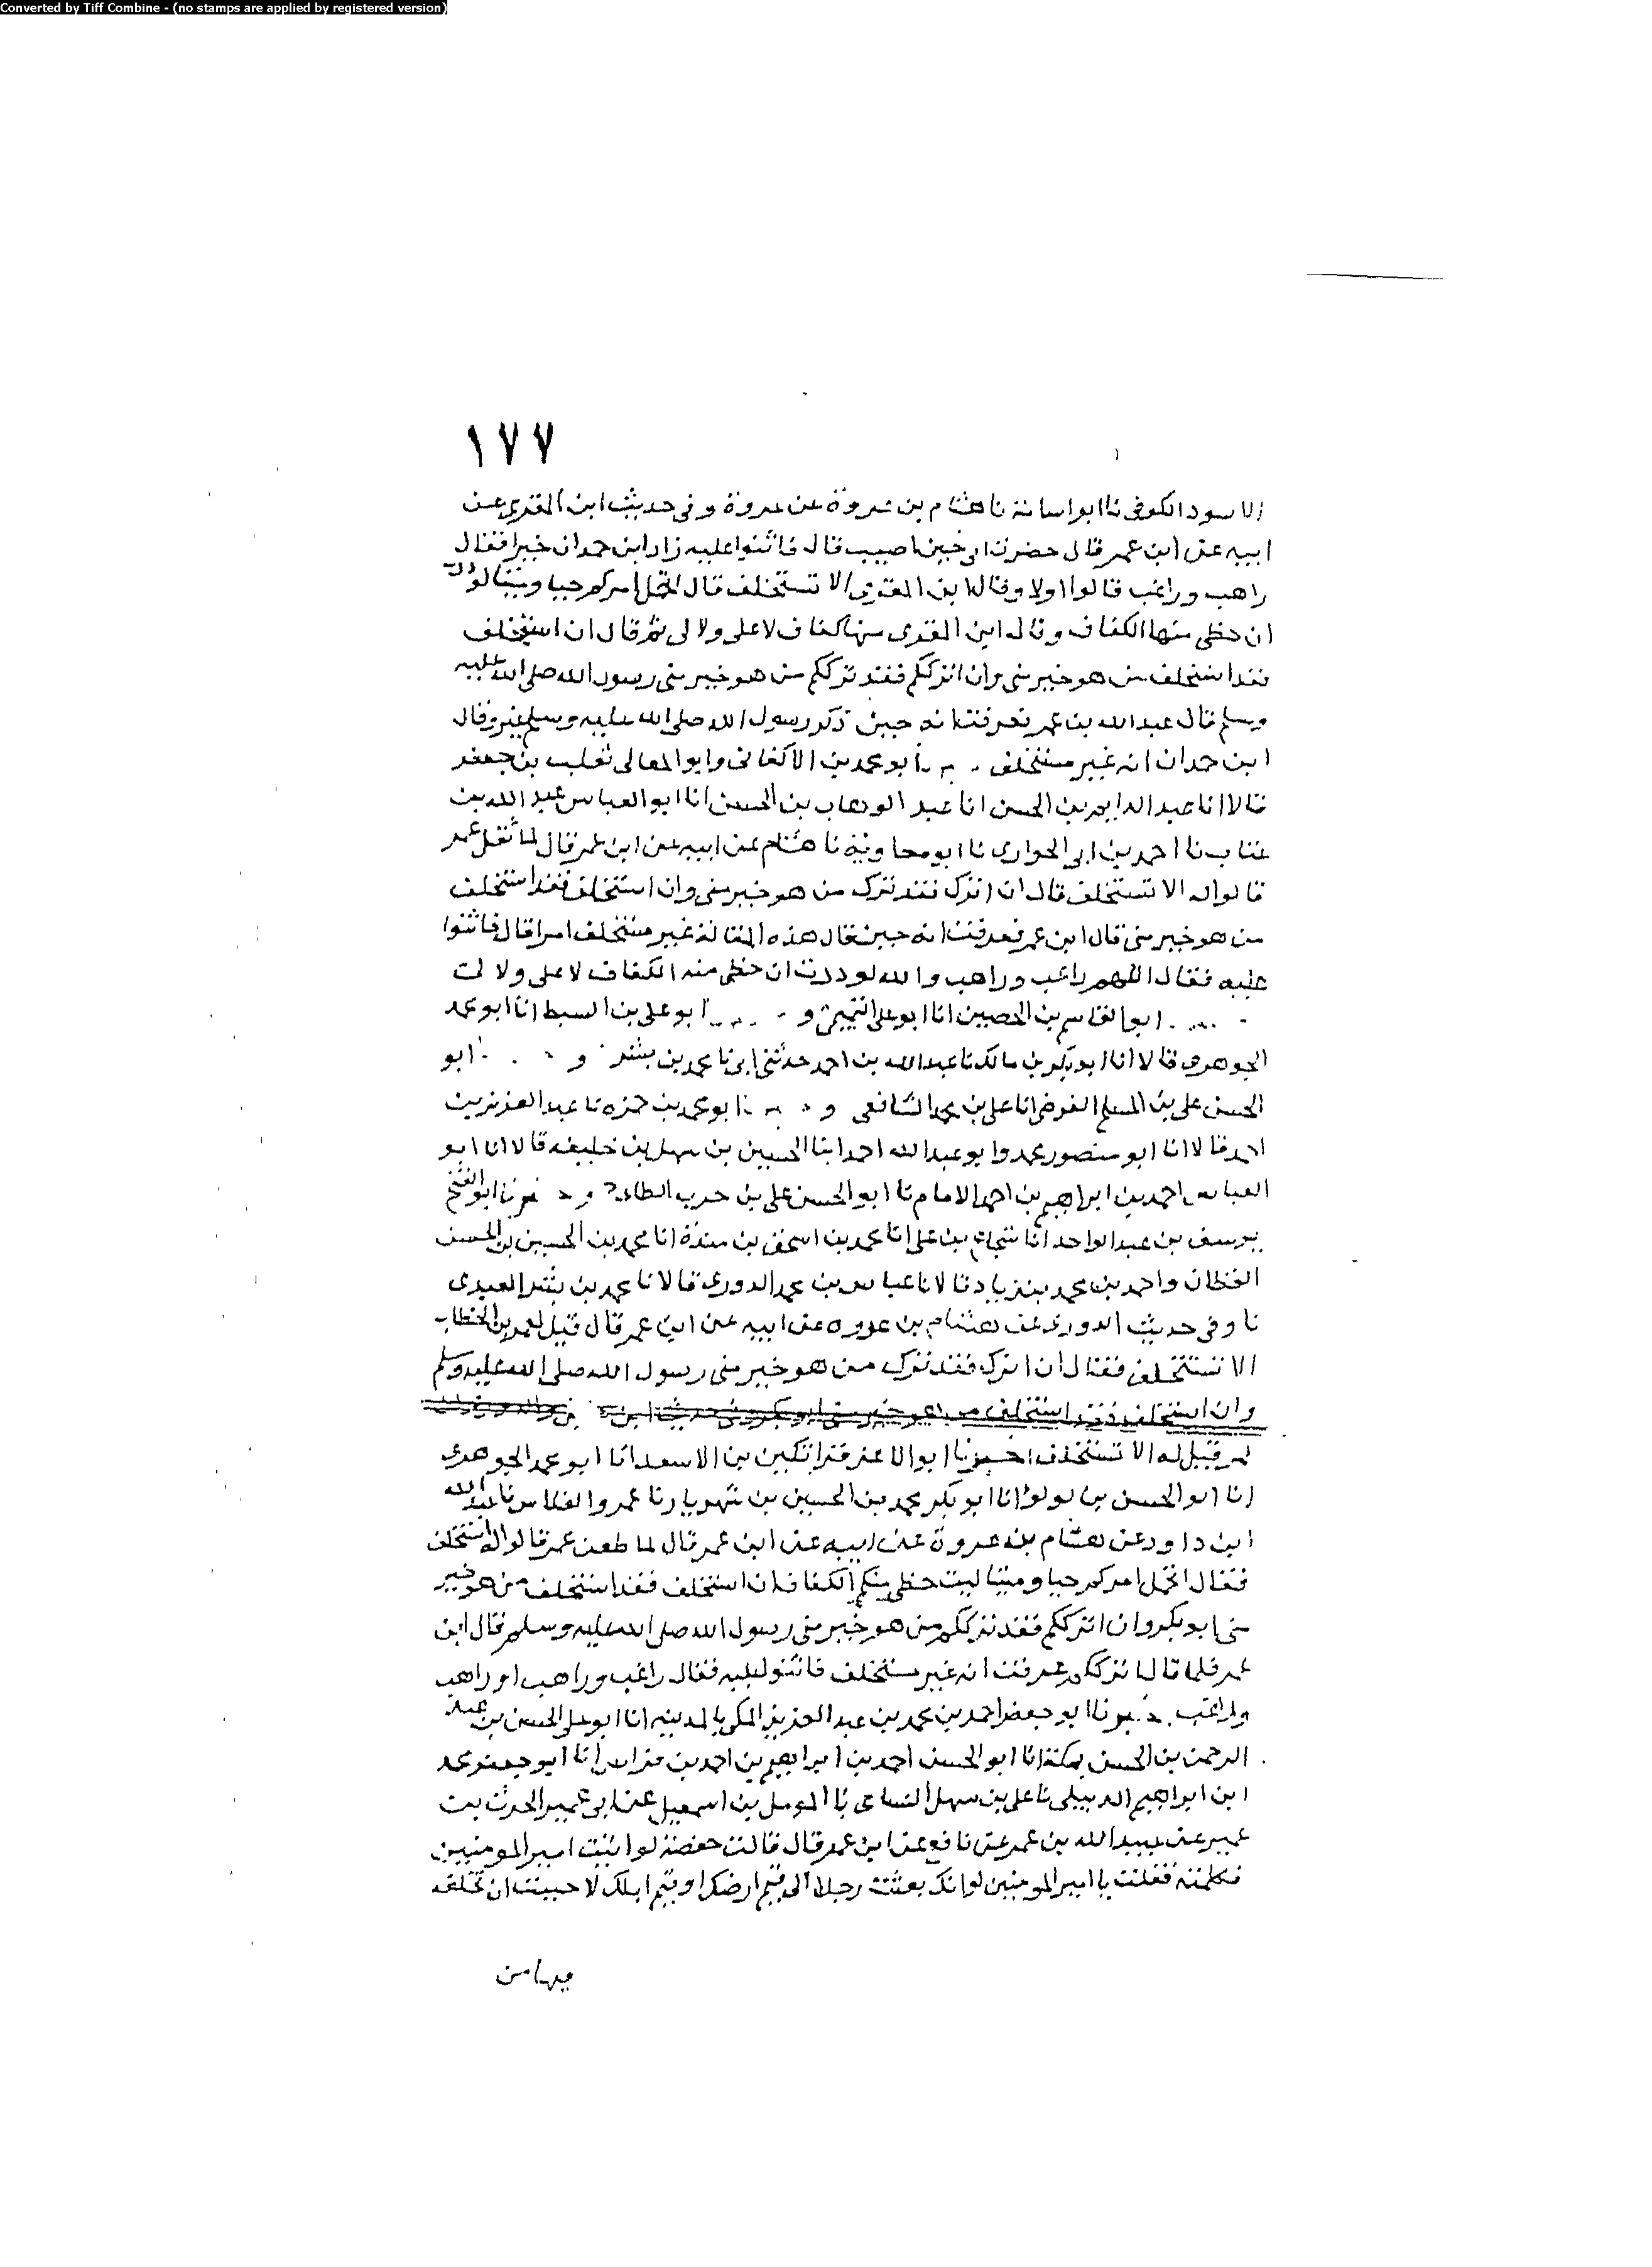 Converted by Tiff Combine - (no stamps are applied by registered version)
١٧٧
الاسود الكوفى نا ابو اسامة نا هشام بن عروة عن عروة وفى حديث ابن المقرى عن
ابيه عن ابن عمر قال حضرت ابى حين اصيب قال فاثنوا عليه زاد ابن حمدان خيرا فقال
راهب وراغب قالوا اولا وقال ابن المقرى الا تستخلف قال اتحمل امركم حيا وميتا لوددت
ان حظى منها الكفاف وقال ابن المقرى منها كفاف لا على ولا لى ثم قال ان استخلف
فقد استخلف من هو خير منى وان اترككم فقد ترككم من هو خير منى رسول الله صلى الله عليه
وسلم قال عبد الله بن عمر فعرفت انه حين ذكر رسول الله صلى الله عليه وسلم غير وقال
ابن حمدان انه غير مستخلف ابو محمد بن الاكفانى وابو المعالى ثعلب بن جعفر
قالا انا عبد الدايم بن الحسن انا عبد الوهاب بن الحسن انا ابو العباس عبد الله بن
عتاب نا احمد بن ابى الحوارى نا ابو معاوية نا هشام عن ابيه عن ابن عمر قال لما ثقل عمر
قالوا له الا تستخلف قال ان اترك فقد ترك من هو خير منى وان استخلف فقد استخلف
من هو خير منى قال ابن عمر فعرفت انه حين قال هذه المقالة غير مستخلف امرا قال فاثنوا
عليه فقال اللهم راغب وراهب والله لوددت ان حظى منه الكفاف لا على ولا لى
ابو القاسم بن الحصين انا ابو على التميمى و ابو على بن السبط انا ابو محمد
الجوهرى قالا انا ابو بكر بن مالك نا عبد الله بن احمد حدثنى ابى نا محمد بن بشر و ابو
الحسن على بن المسلم الفرضى انا على بن محمد الشافعى و ابو محمد بن حمزه نا عبد العزيز بن
احمد قالا انا ابو منصور محمد وابو عبد الله احمد ابنا الحسين بن سهل بن خليفه قالا انا ابو
العباس احمد بن ابراهيم بن احمد الامام نا ابو الحسن على بن حرب الطائى و ابو الفتح
يوسف بن عبد الواحد انا شجاع بن على انا محمد بن اسحق بن مندة انا محمد بن الحسين بن الحسن
القطان واحمد بن محمد بن زياد قالا نا عباس بن محمد الدورى قالا نا محمد بن بشر العبدى
نا وفى حديث الدورى عن هشام بن عروه عن ابيه عن ابن عمر قال قيل لعمر بن الخطاب
الا تستخلف فقال ان اترك فقد ترك من هو خير منى رسول الله صلى الله عليه وسلم
وان استخلف فقد استخلف من هو خير منى ابو بكر وفى حديث ابن
قيل له الا تستخلف اخبرنا ابو الاعز قراتكين بن الاسعد انا ابو محمد الجوهرى
انا ابو الحسن بن لولؤ انا ابو بكر محمد بن الحسين بن شهريار نا عمرو الفلاس نا عبد الله
ابن داود عن هشام بن عروة عن ابيه عن ابن عمر قال لما طعن عمر قالوا له استخلف
فقال اتحمل امركم حيا وميتا ليت حظى منكم الكفاف ان استخلف فقد استخلف من هو خير
منى ابو بكر وان اترككم فقد ترككم من هو خير منى رسول الله صلى الله عليه وسلم قال ابن
عمر فلما قال اترككم عرفت انه غير مستخلف فاثنوا عليه فقال راغب وراهب او راهب
وراغب اخبرنا ابو جعفر احمد بن محمد بن عبد العزيز المكى بالمدينه انا ابو على الحسن بن عبد
الرحمن بن الحسن بمكة انا ابو الحسن احمد بن ابراهيم بن احمد بن فراس انا ابو جعفر محمد
ابن ابراهيم الديبلى نا على بن سهل النساى نا المومل بن اسمعيل عن ابى عمير الحرث بن
عمير عن عبيد الله بن عمر عن نافع عن ابن عمر قال قالت حفصة لو اتيت امير المومنين
فكلمته فقلت يا امير المومنين لو انك بعثت رجلا الى قيم ارضك او قيم ابلك لاحببت ان تخلفه
فيها من